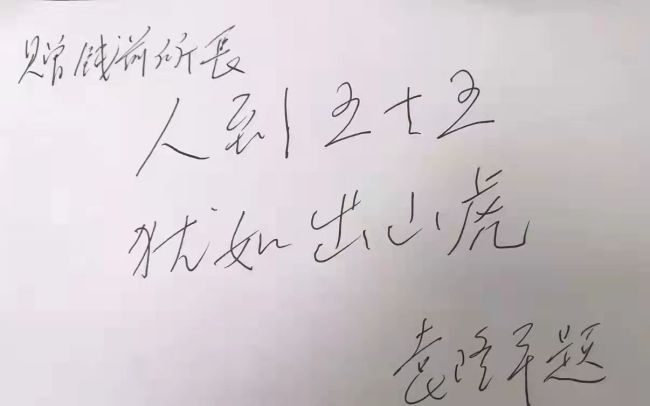 赠钱前所長
人到五十五
犹如出山虎
袁隆平题